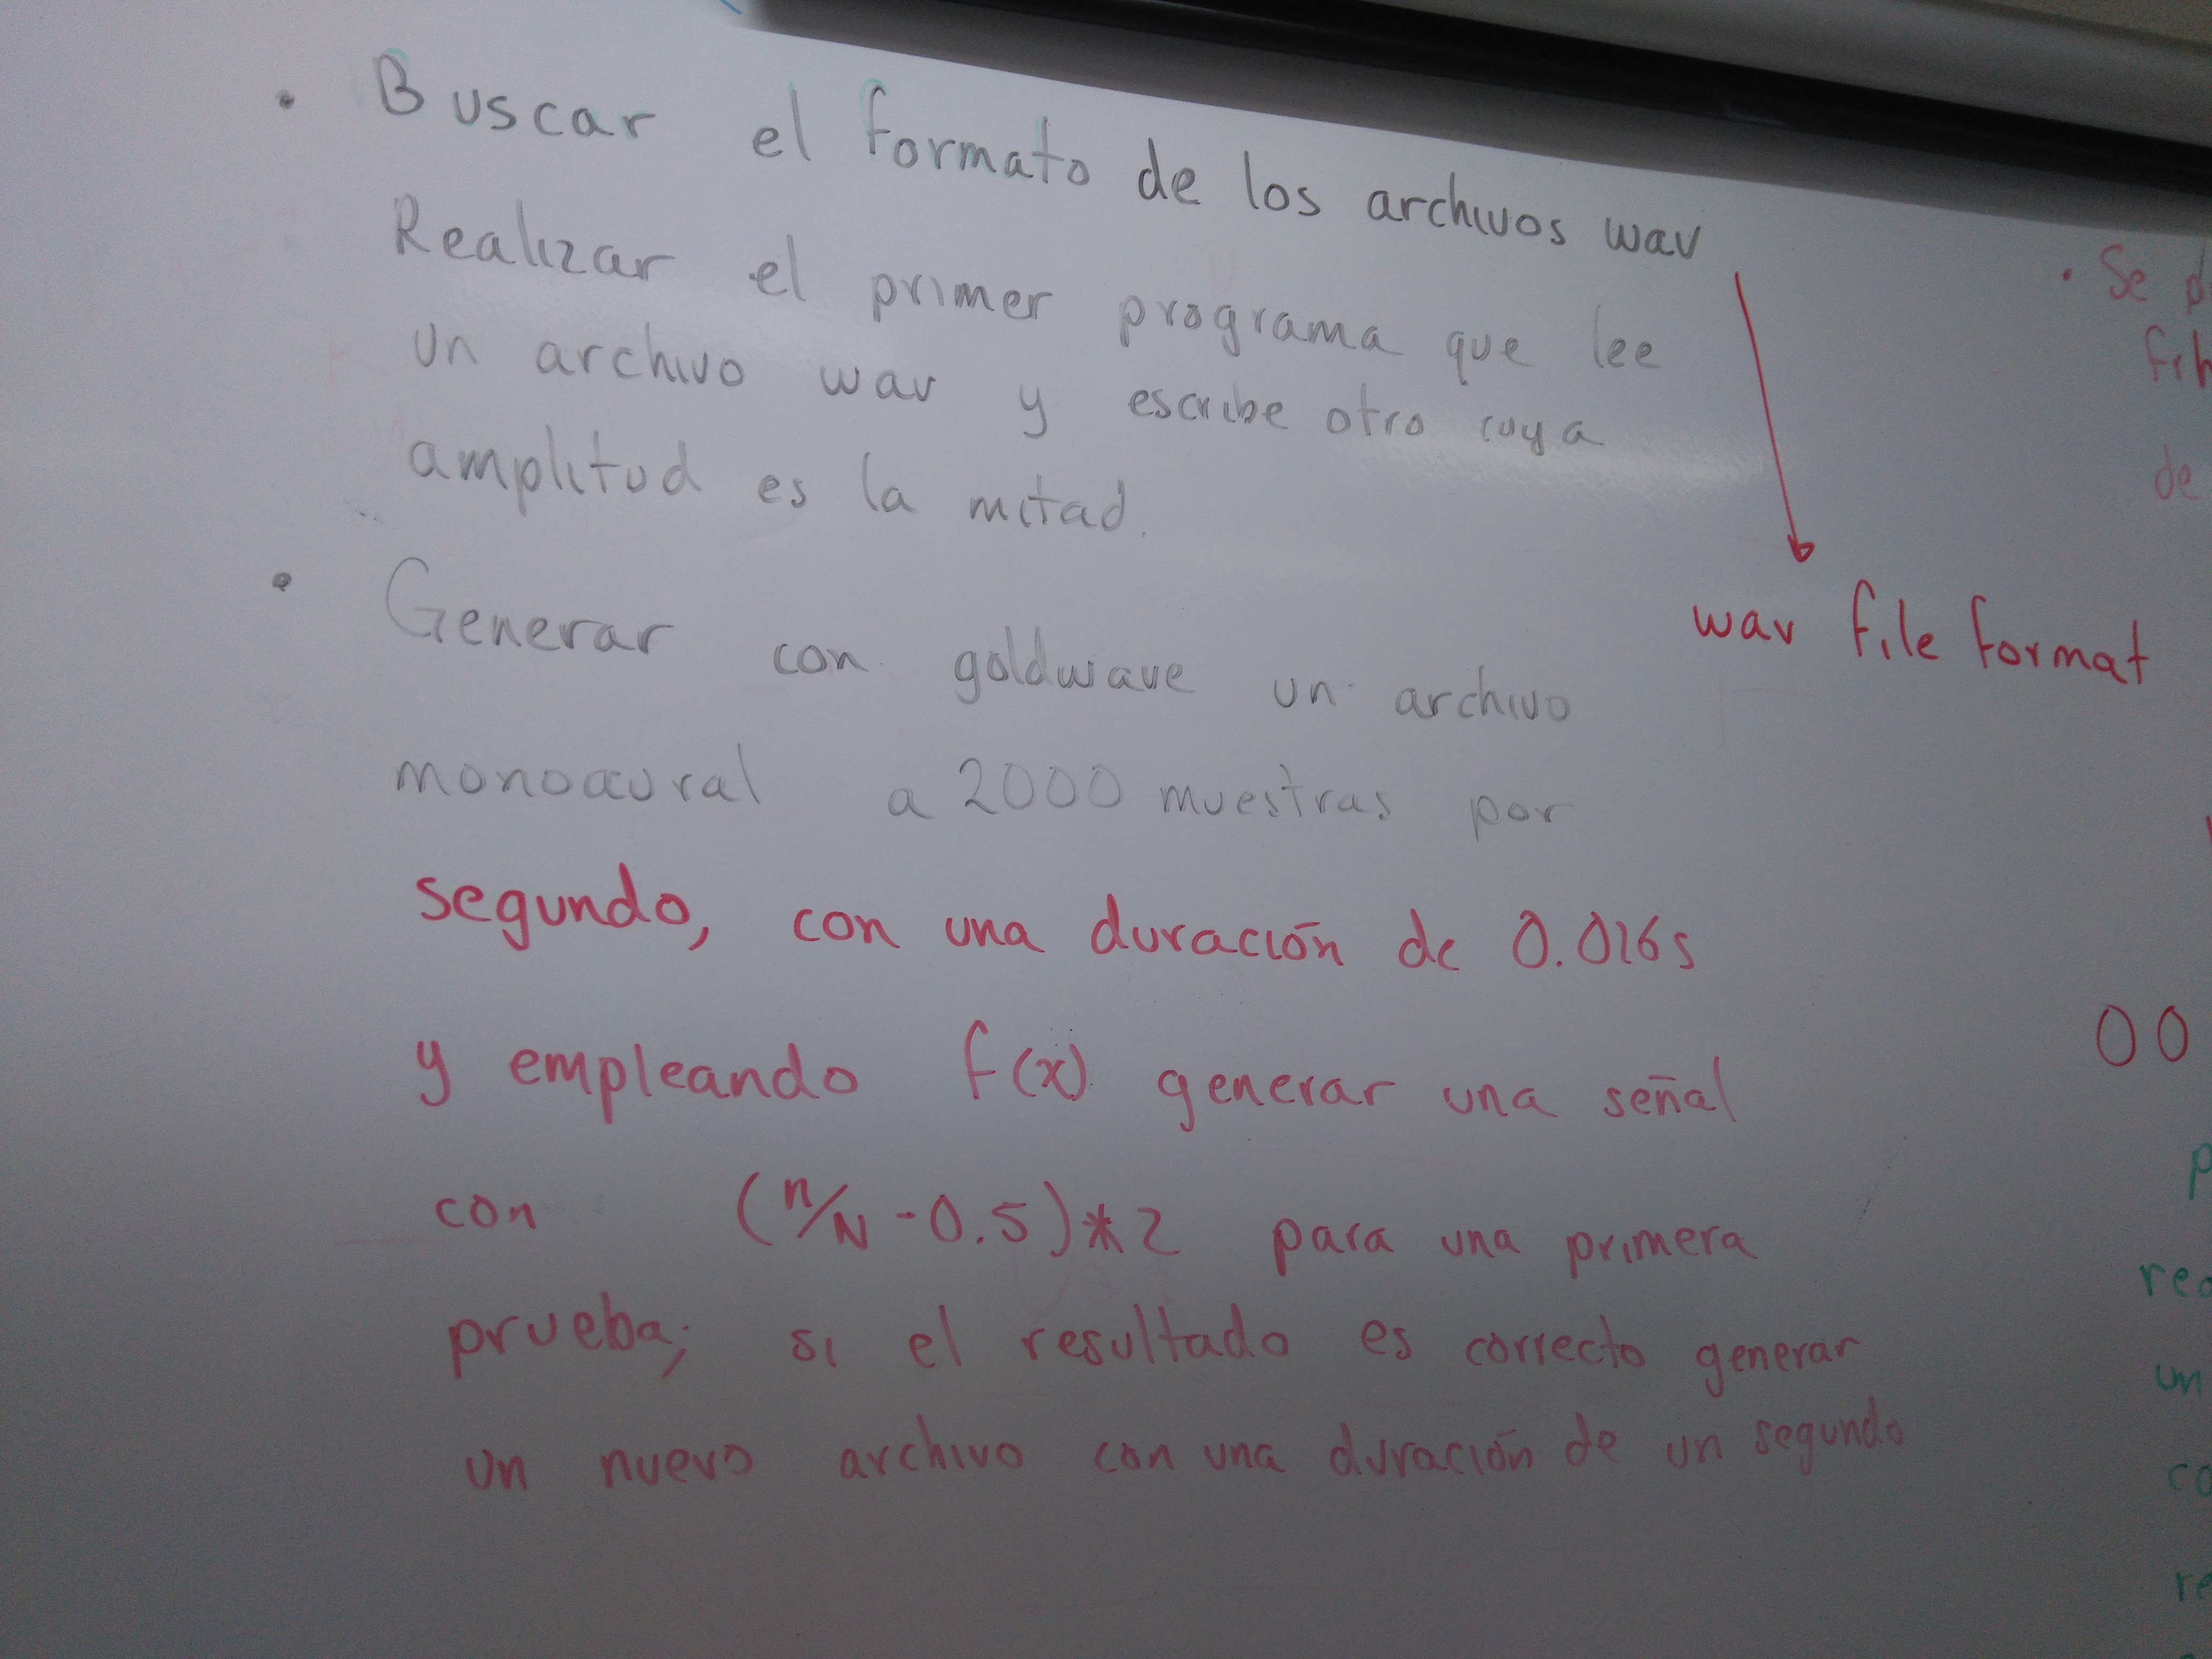 • Buscar el formato de los archivos wav
Realizar el primer programa que lee
un archivo wav y escribe otro cuya
amplitud es la mitad.
• Generar con goldwave un archivo
monoaural a 2000 muestras por
segundo, con una duración de 0.016s
y empleando f(x) generar una señal
con (n/N - 0.5)*2 para una primera
prueba; si el resultado es correcto generar
un nuevo archivo con una duración de un segundo
wav file format
• Se
de
00
un